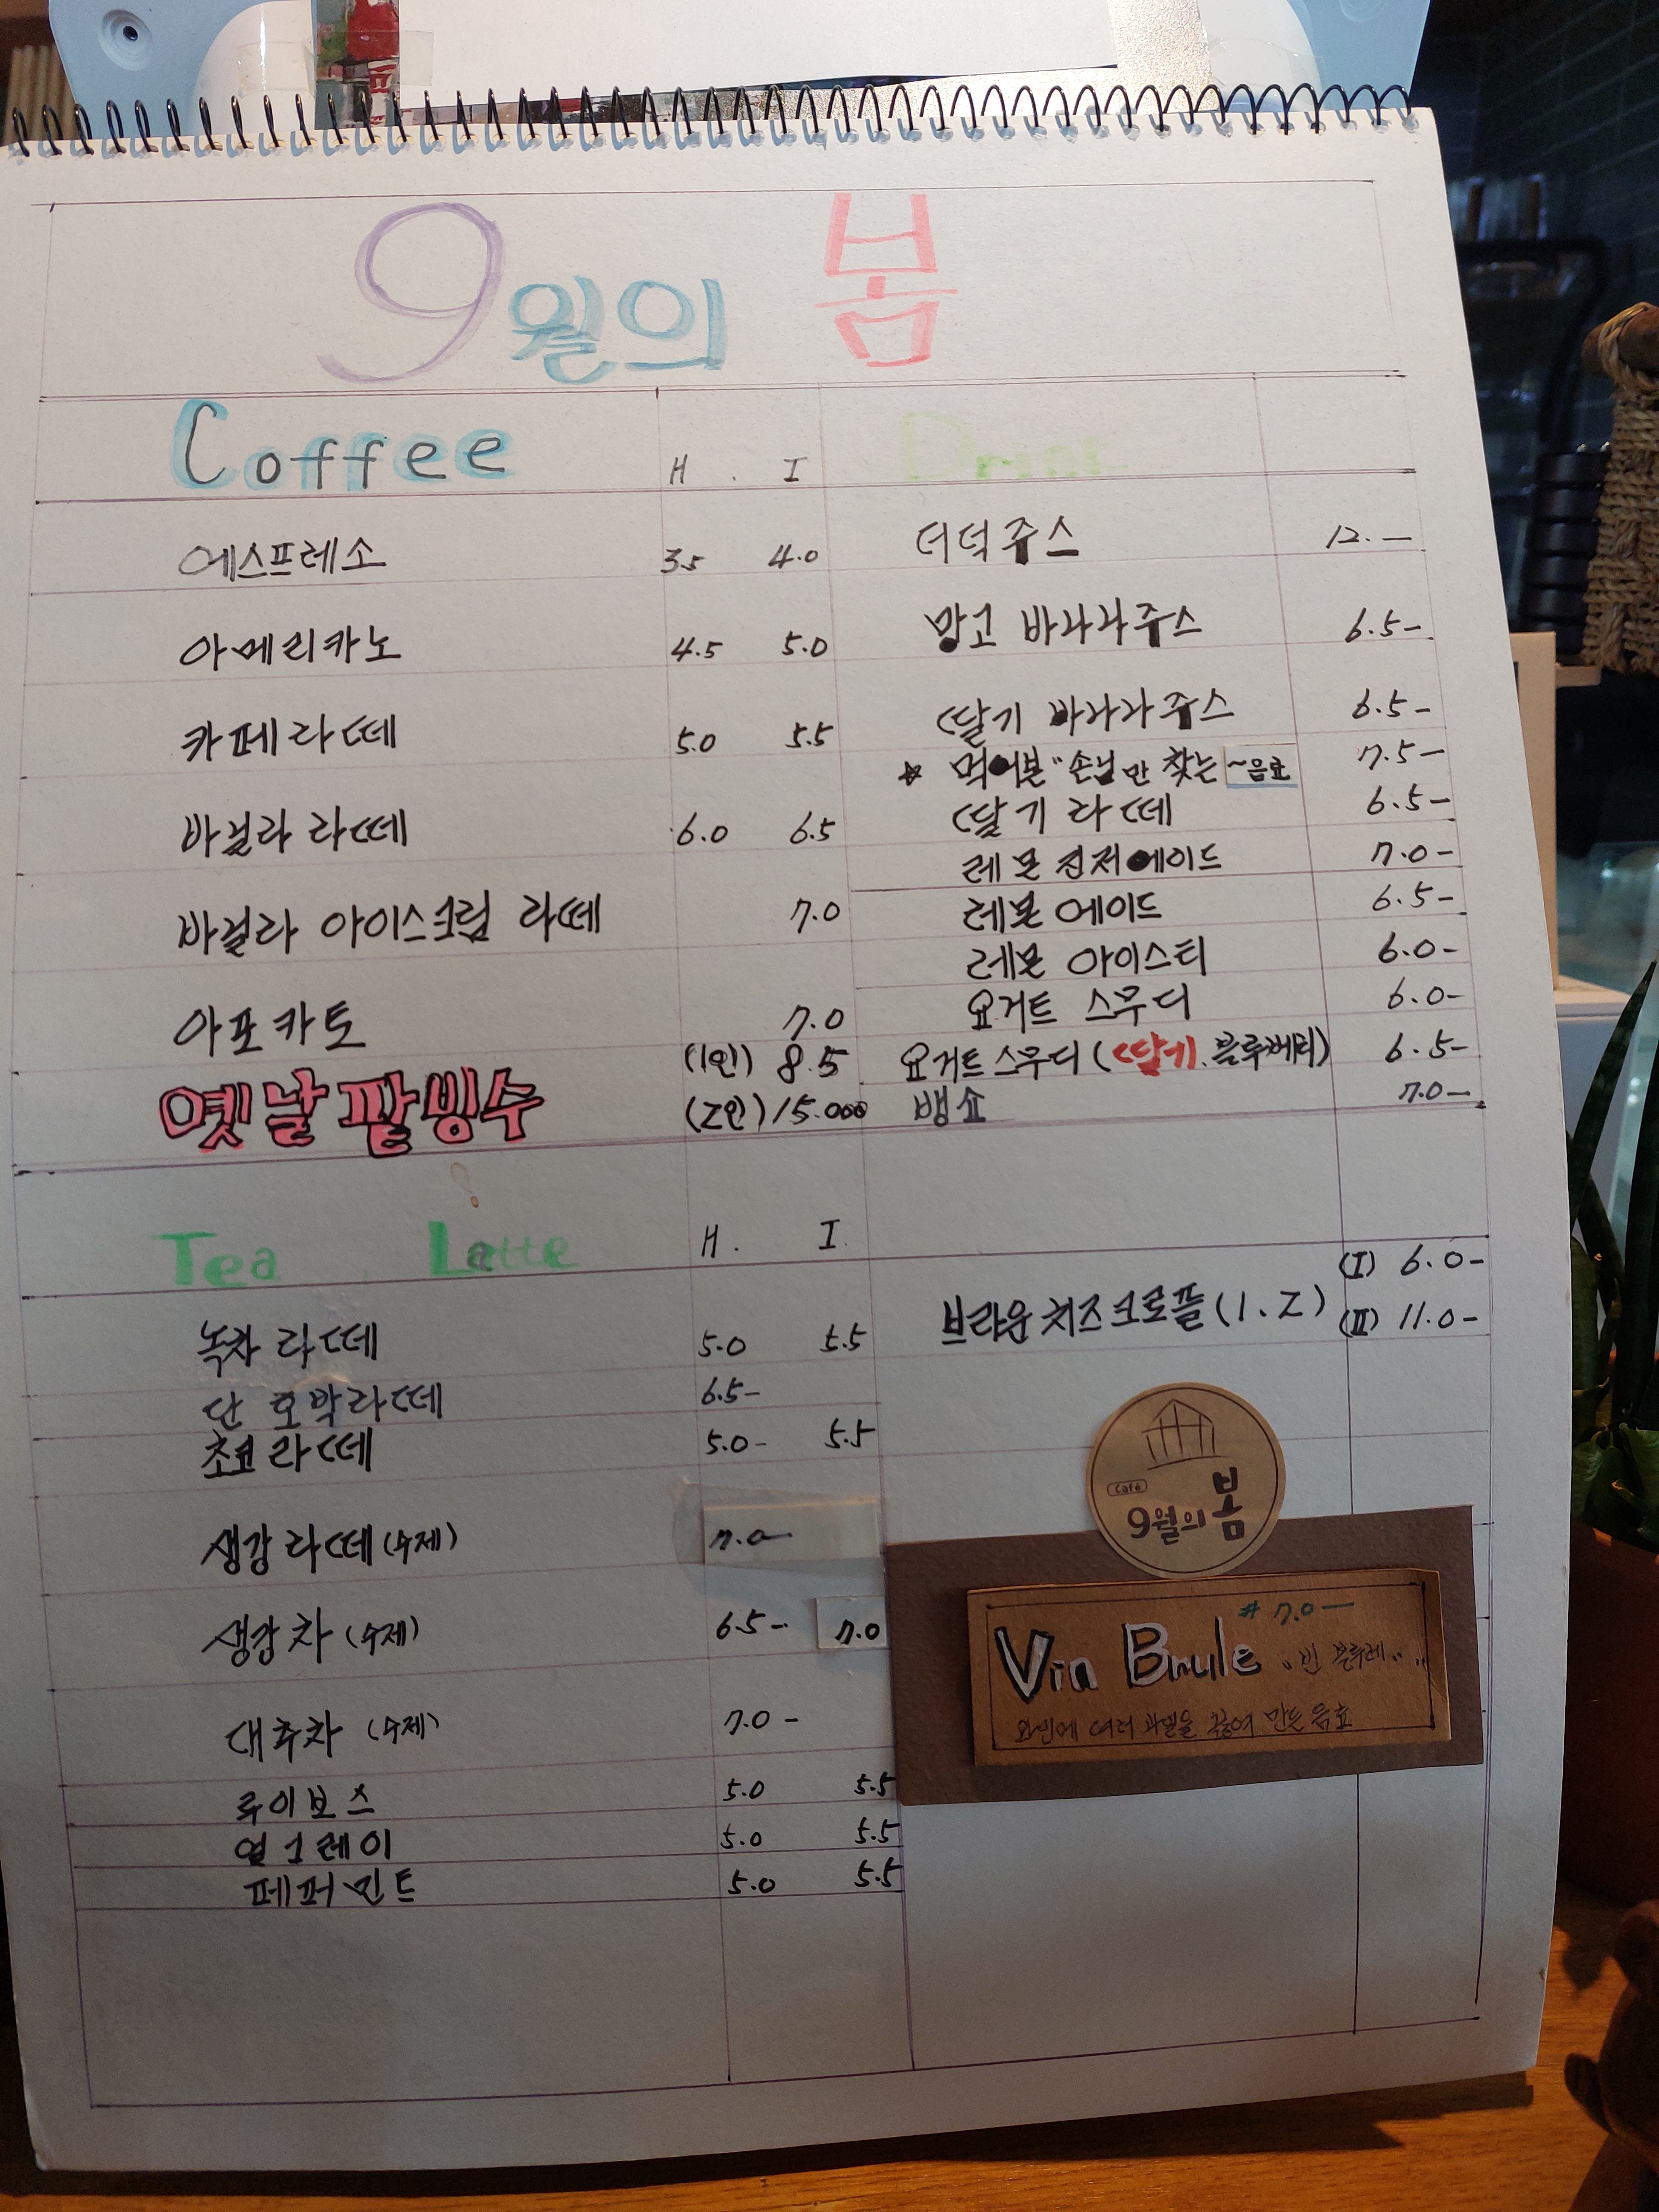 9월의 봄
Coffee H . I
에스프레소 3.5 4.0
아메리카노 4.5 5.0
카페라떼 5.0 5.5
바닐라 라떼 6.0 6.5
바닐라 아이스크림 라떼 7.0
아포카토 7.0
옛날팥빙수 (1인) 8.5
(2인) 15.000
Drink
더덕쥬스 12.-
망고 바나나쥬스 6.5-
딸기 바나나쥬스 6.5-
☆ 먹어본 "손님만 찾는 ~음료 7.5-
딸기 라떼 6.5-
레몬 진저에이드 7.0-
레몬 에이드 6.5-
레몬 아이스티 6.0-
요거트 스무디 6.0-
요거트스무디 (딸기.블루베리) 6.5-
뱅쇼 7.0-
Tea Latte H. I.
녹차 라떼 5.0 5.5
단호박라떼 6.5-
초코라떼 5.0- 5.5
생강라떼 (수제) 7.0-
생강차 (수제) 6.5- 7.0
대추차 (수제) 7.0-
루이보스 5.0 5.5
얼그레이 5.0 5.5
페퍼민트 5.0 5.5
브라운치즈크로플 (1.2) (I) 6.0-
(II) 11.0-
Café
9월의 봄
# 7.0-
Vin Brule "빈 블루레"
와인에 여러 과일을 끓여 만든 음료